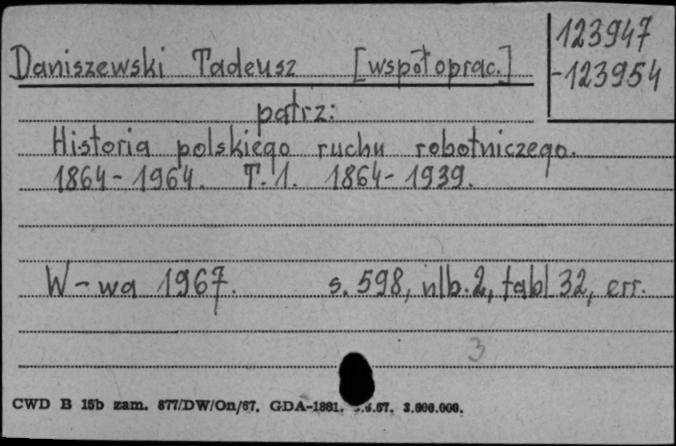 123947
-123954
Daniszewski Tadeusz [współoprac.]
patrz:
Historia polskiego ruchu robotniczego.
1864-1964. T. 1. 1864-1939.
W-wa 1967. s. 598, nlb. 2, tabl 32, err.
3
CWD B 15b zam. 877/DW/On/67. GDA-1881. .67. 3.000.000.